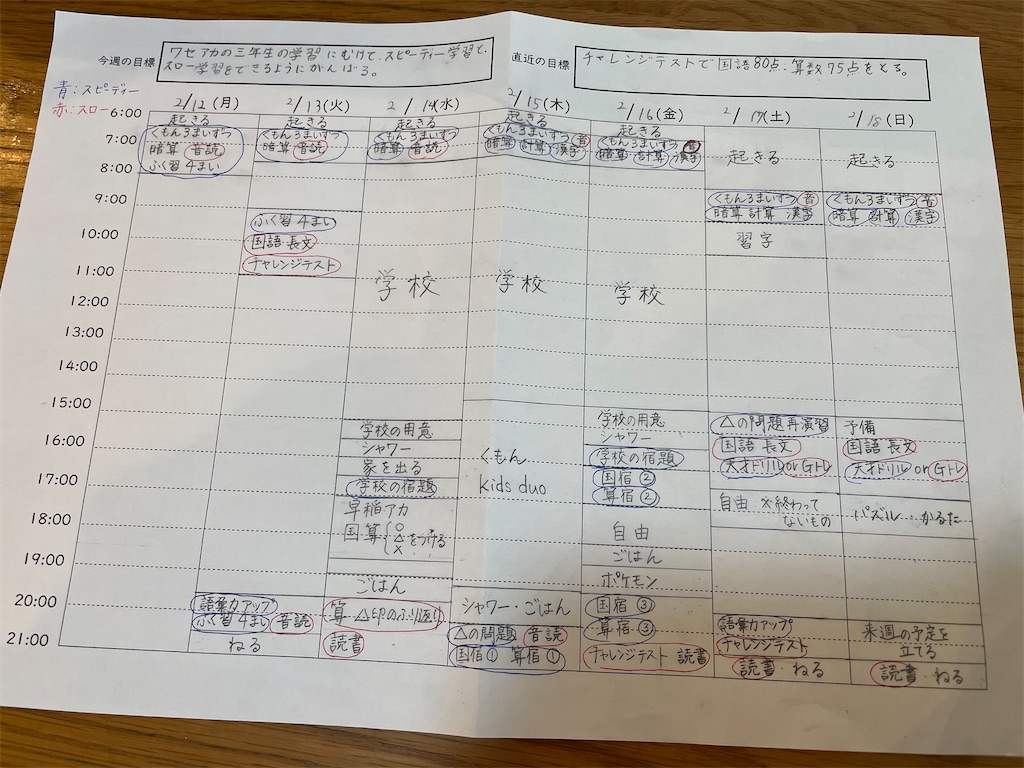 今週の目標
ワセアカの三年生の学習にむけて、スピーディー学習と、
スロー学習をできるようにがんばる。
直近の目標
チャレンジテストで国語80点、算数75点をとる。
青:スピーディー
赤:スロー
2/12(月)
2/13(火)
2/14(水)
2/15(木)
2/16(金)
2/17(土)
2/18(日)
6:00
7:00
8:00
9:00
10:00
11:00
12:00
13:00
14:00
15:00
16:00
17:00
18:00
19:00
20:00
21:00
起きる
くもん3まいずつ
暗算 音読
ふく習 4まい
語彙力アップ
ふく習 4まい 音読
ねる
起きる
くもん3まいずつ
暗算 音読
ふく習 4まい
国語 長文
チャレンジテスト
算 △印のふり返り
読書
起きる
くもん3まいずつ
暗算 音読
学校
学校の用意
シャワー
家を出る
学校の宿題
早稲アカ
国算 {○△×をつける
ごはん
起きる
くもん3まいずつ 音
暗算 計算 漢字
学校
くもん
kids duo
シャワー・ごはん
△の問題 音読
国宿① 算宿①
起きる
くもん3まいずつ 音
暗算 計算 漢字
学校
学校の用意
シャワー
学校の宿題
国宿②
算宿②
自由
ごはん
ポケモン
国宿③
算宿③
チャレンジテスト 読書
起きる
くもん3まいずつ 音
暗算 計算 漢字
習字
△の問題再演習
国語 長文
天才ドリル or Gトレ
自由 ※終わって
ないもの
語彙力アップ
チャレンジテスト
読書・ねる
起きる
くもん3まいずつ 音
暗算 計算 漢字
予備
国語 長文
天才ドリル or Gトレ
パズル・かるた
来週の予定を
立てる
読書・ねる